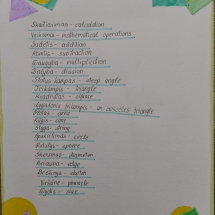 Skaičiavimas - calculation
Veiksmai - mathematical operations
Sudėtis - addition
Atimtis - subtraction
Daugyba - multiplication
Dalyba - division
Status kampas -
Trikampis - triangle
Kvadratas - square
Lygiašonis trikampis - isosceles triangle
Plotas - area
Kūgis - cone
Apskritimas - circle
Rutulys - sphere
Skersmuo - diameter
Briauna - edge
Brėžinys - sketch
Viršūnė - pinnacle
Dydis - size